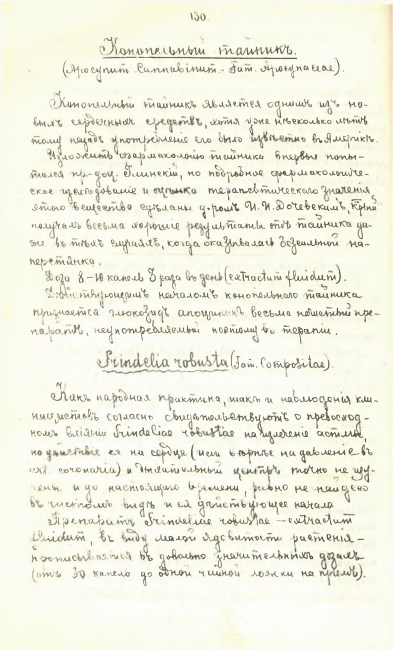 130
Конопельный тайникъ.
(Apocynum Cannabinum.- Fam. Apocynaceae).
Конопельный тайникъ является однимъ изъ но-
выхъ сердечныхъ средствъ, хотя уже нѣсколько лѣтъ
тому назадъ употребленіе его было извѣстно въ Америкѣ.
Изложить фармакологію тайника впервые попы-
тался пр-доц. Глинскій, но подробное фармакологиче-
ское изслѣдованіе и оцѣнка терапевтическаго значенія
этого вещества сдѣланы д-ромъ И. И. Дочевскимъ, крый
получалъ весьма хорошіе результаты отъ тайника да-
же въ тѣхъ случаяхъ, когда оказывалась безсильной на-
перстянка.
Доза 8-10 капель 3 раза въ день (extractum fluidum).
Дѣйствующимъ началомъ конопельнаго тайника
признается глюкозидъ апоцинъ весьма нестойкій пре-
паратъ, неупотребляемый поэтому въ терапіи.
Grindelia robusta (Fam. Compositae).
Какъ народная практика, такъ и наблюденія кли-
ницистовъ согласно свидѣтельствуютъ о превосход-
номъ вліяніи Grindeliae robustae на излеченіе астмы,
но дѣйствіе ея на сердце (или вѣрнѣе на давленіе въ
art. coronaria) и дыхательный центръ точно не изу-
чены и до настоящаго времени, равно не найдено
въ чистомъ видѣ и ея дѣйствующее начала
Препаратъ Grindeliae robustae - extractum
fluidum, въ виду малой ядовитости растенія-
прописывается въ довольно значительныхъ дозахъ
(отъ 30 капель до одной чайной ложки на пріемъ).